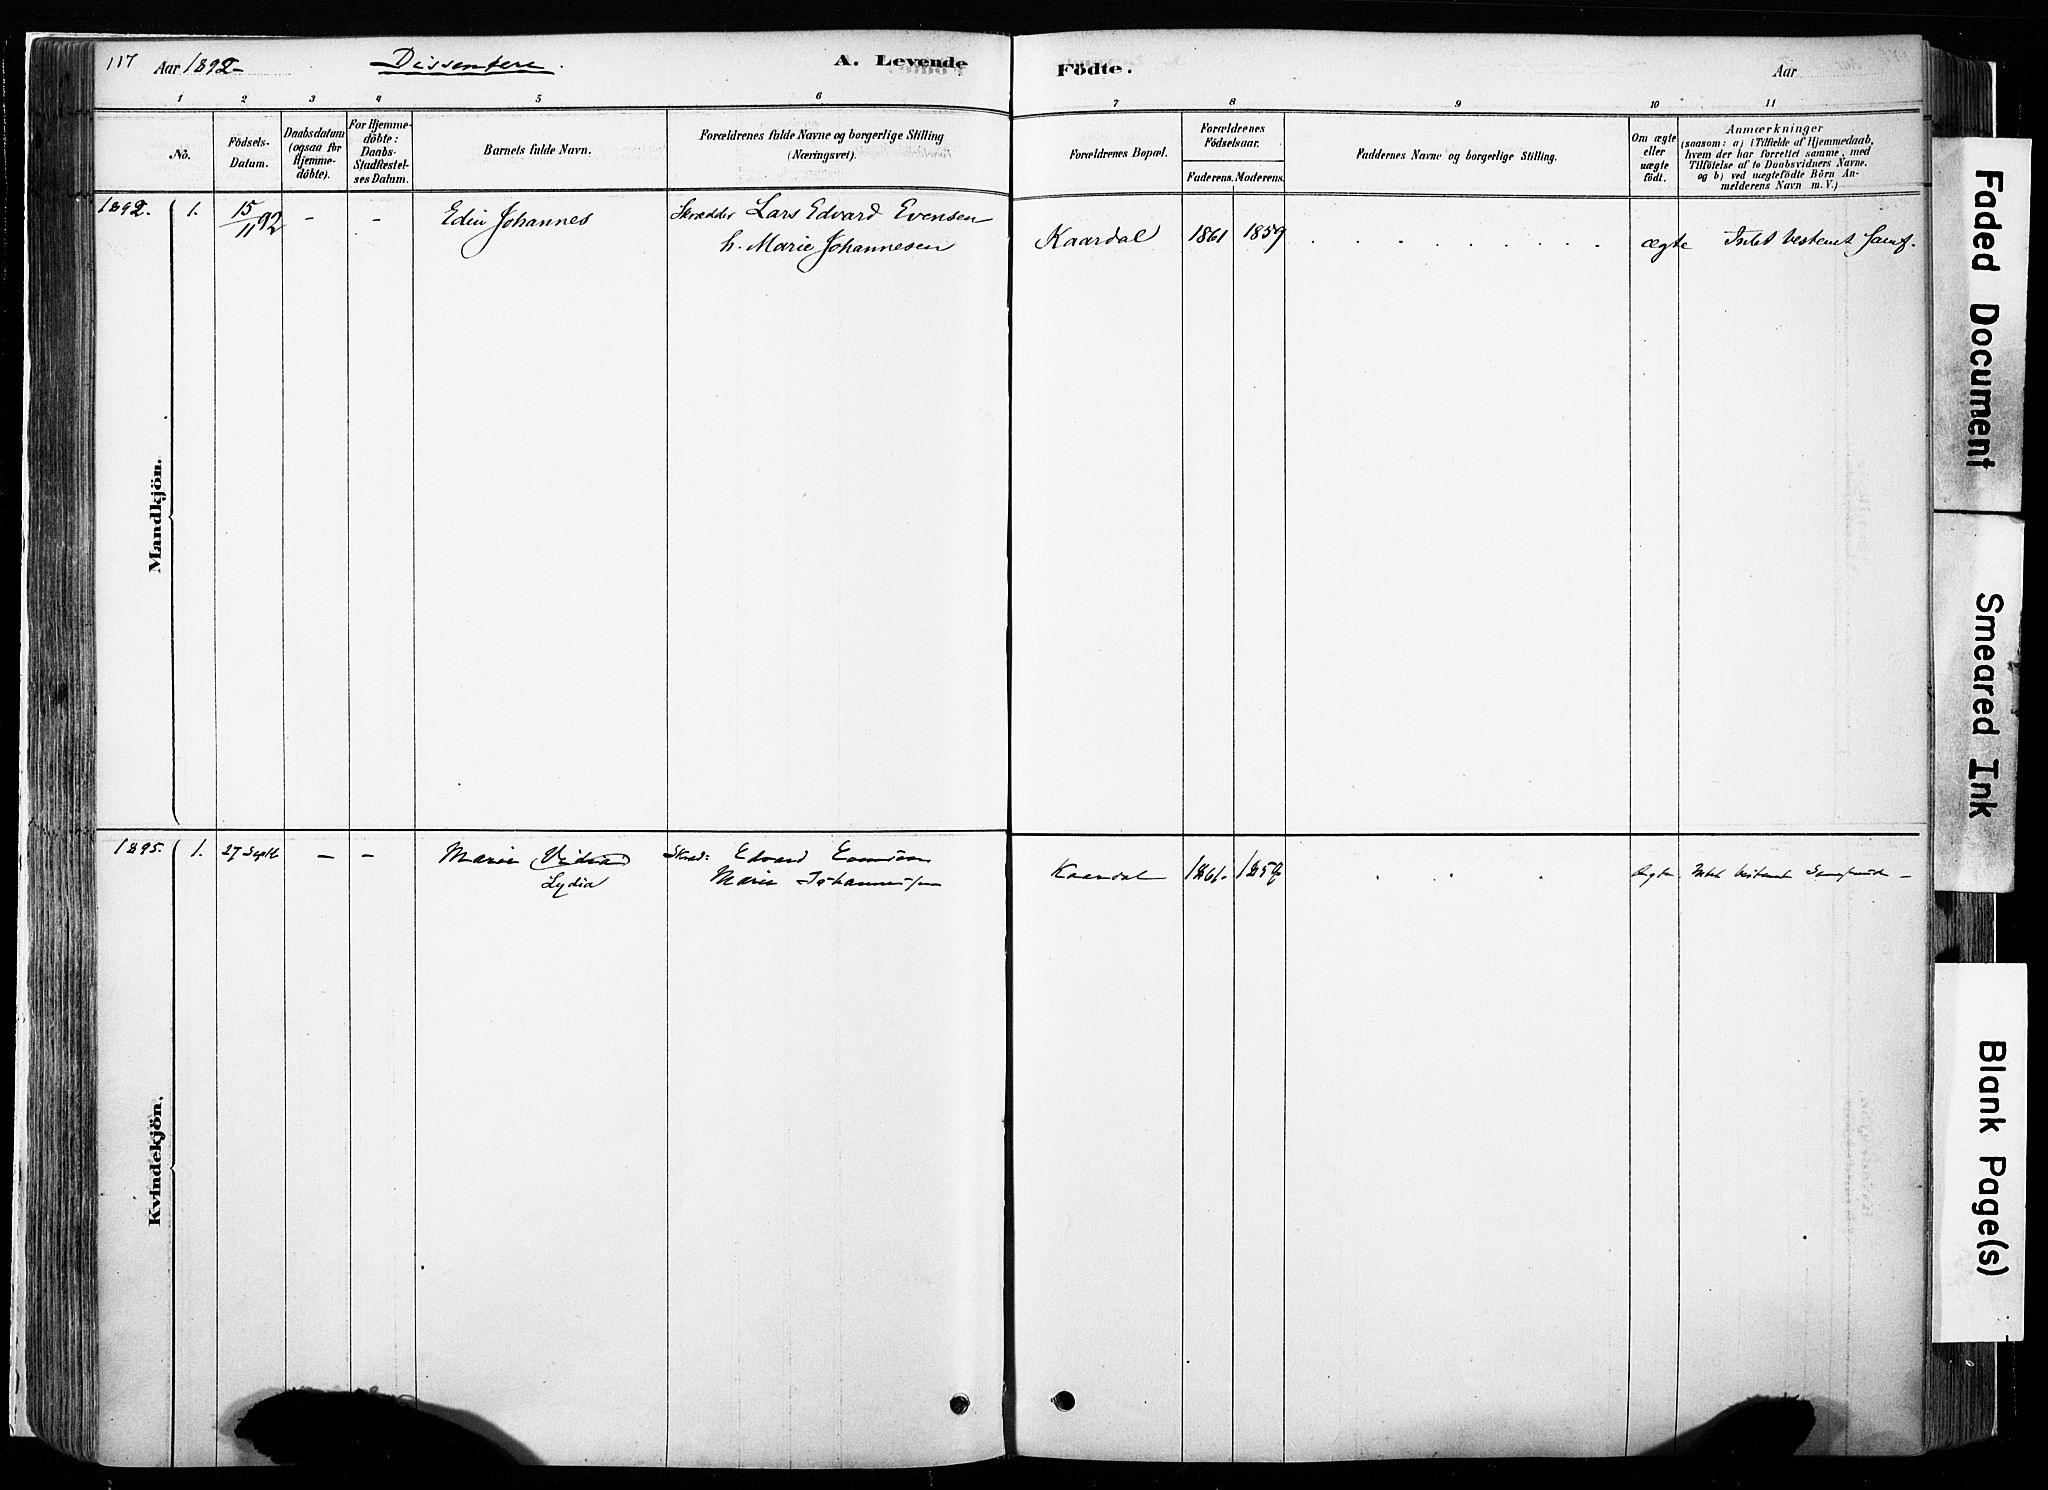 117 Aar 1892 Dissentere. A. Levende Födte. Aar
1 2 3 4 5 6 7 8 9 10 11
No.
Födsels-
Datum.
Daabsdatum
(ogsaa for
Hjemme-
döbte).
For Hjemme-
döbte:
Daabs-
Stadfæstel-
ses Datum.
Barnets fulde Navn.
Forældrenes fulde Navne og borgerlige Stilling
(Næringsvei).
Forældrenes Bopæl.
Forældrenes
Födselsaar.
Faderens. Moderens.
Faddernes Navne og borgerlige Stilling.
Om ægte
eller
uægte
födt.
Anmærkninger
(saasom: a) i Tilfælde af Hjemmedaab,
hvem der har forrettet samme, med
Tilföielse af to Daabsvidners Navne,
og b) ved uægtefödte Börn An-
melderens Navn m. V.)
Mandkjön.
1892. 1. 15/11 92 - - Edin Johannes Skrædder Lars Edvard Evensen
h. Marie Johannesen
Kaardal 1861 1859 . . . . . . . . . ægte Intet bestemt Samf.
Kvindekjön.
1895. 1. 27 Septb. - - Marie Skræd: Edvard Evensen
Lydia Marie Johannessen
Kaardal 1861. 1859 . . . ægte Intet bestemt Samfund -
Faded Document
Smeared Ink
Blank Page(s)